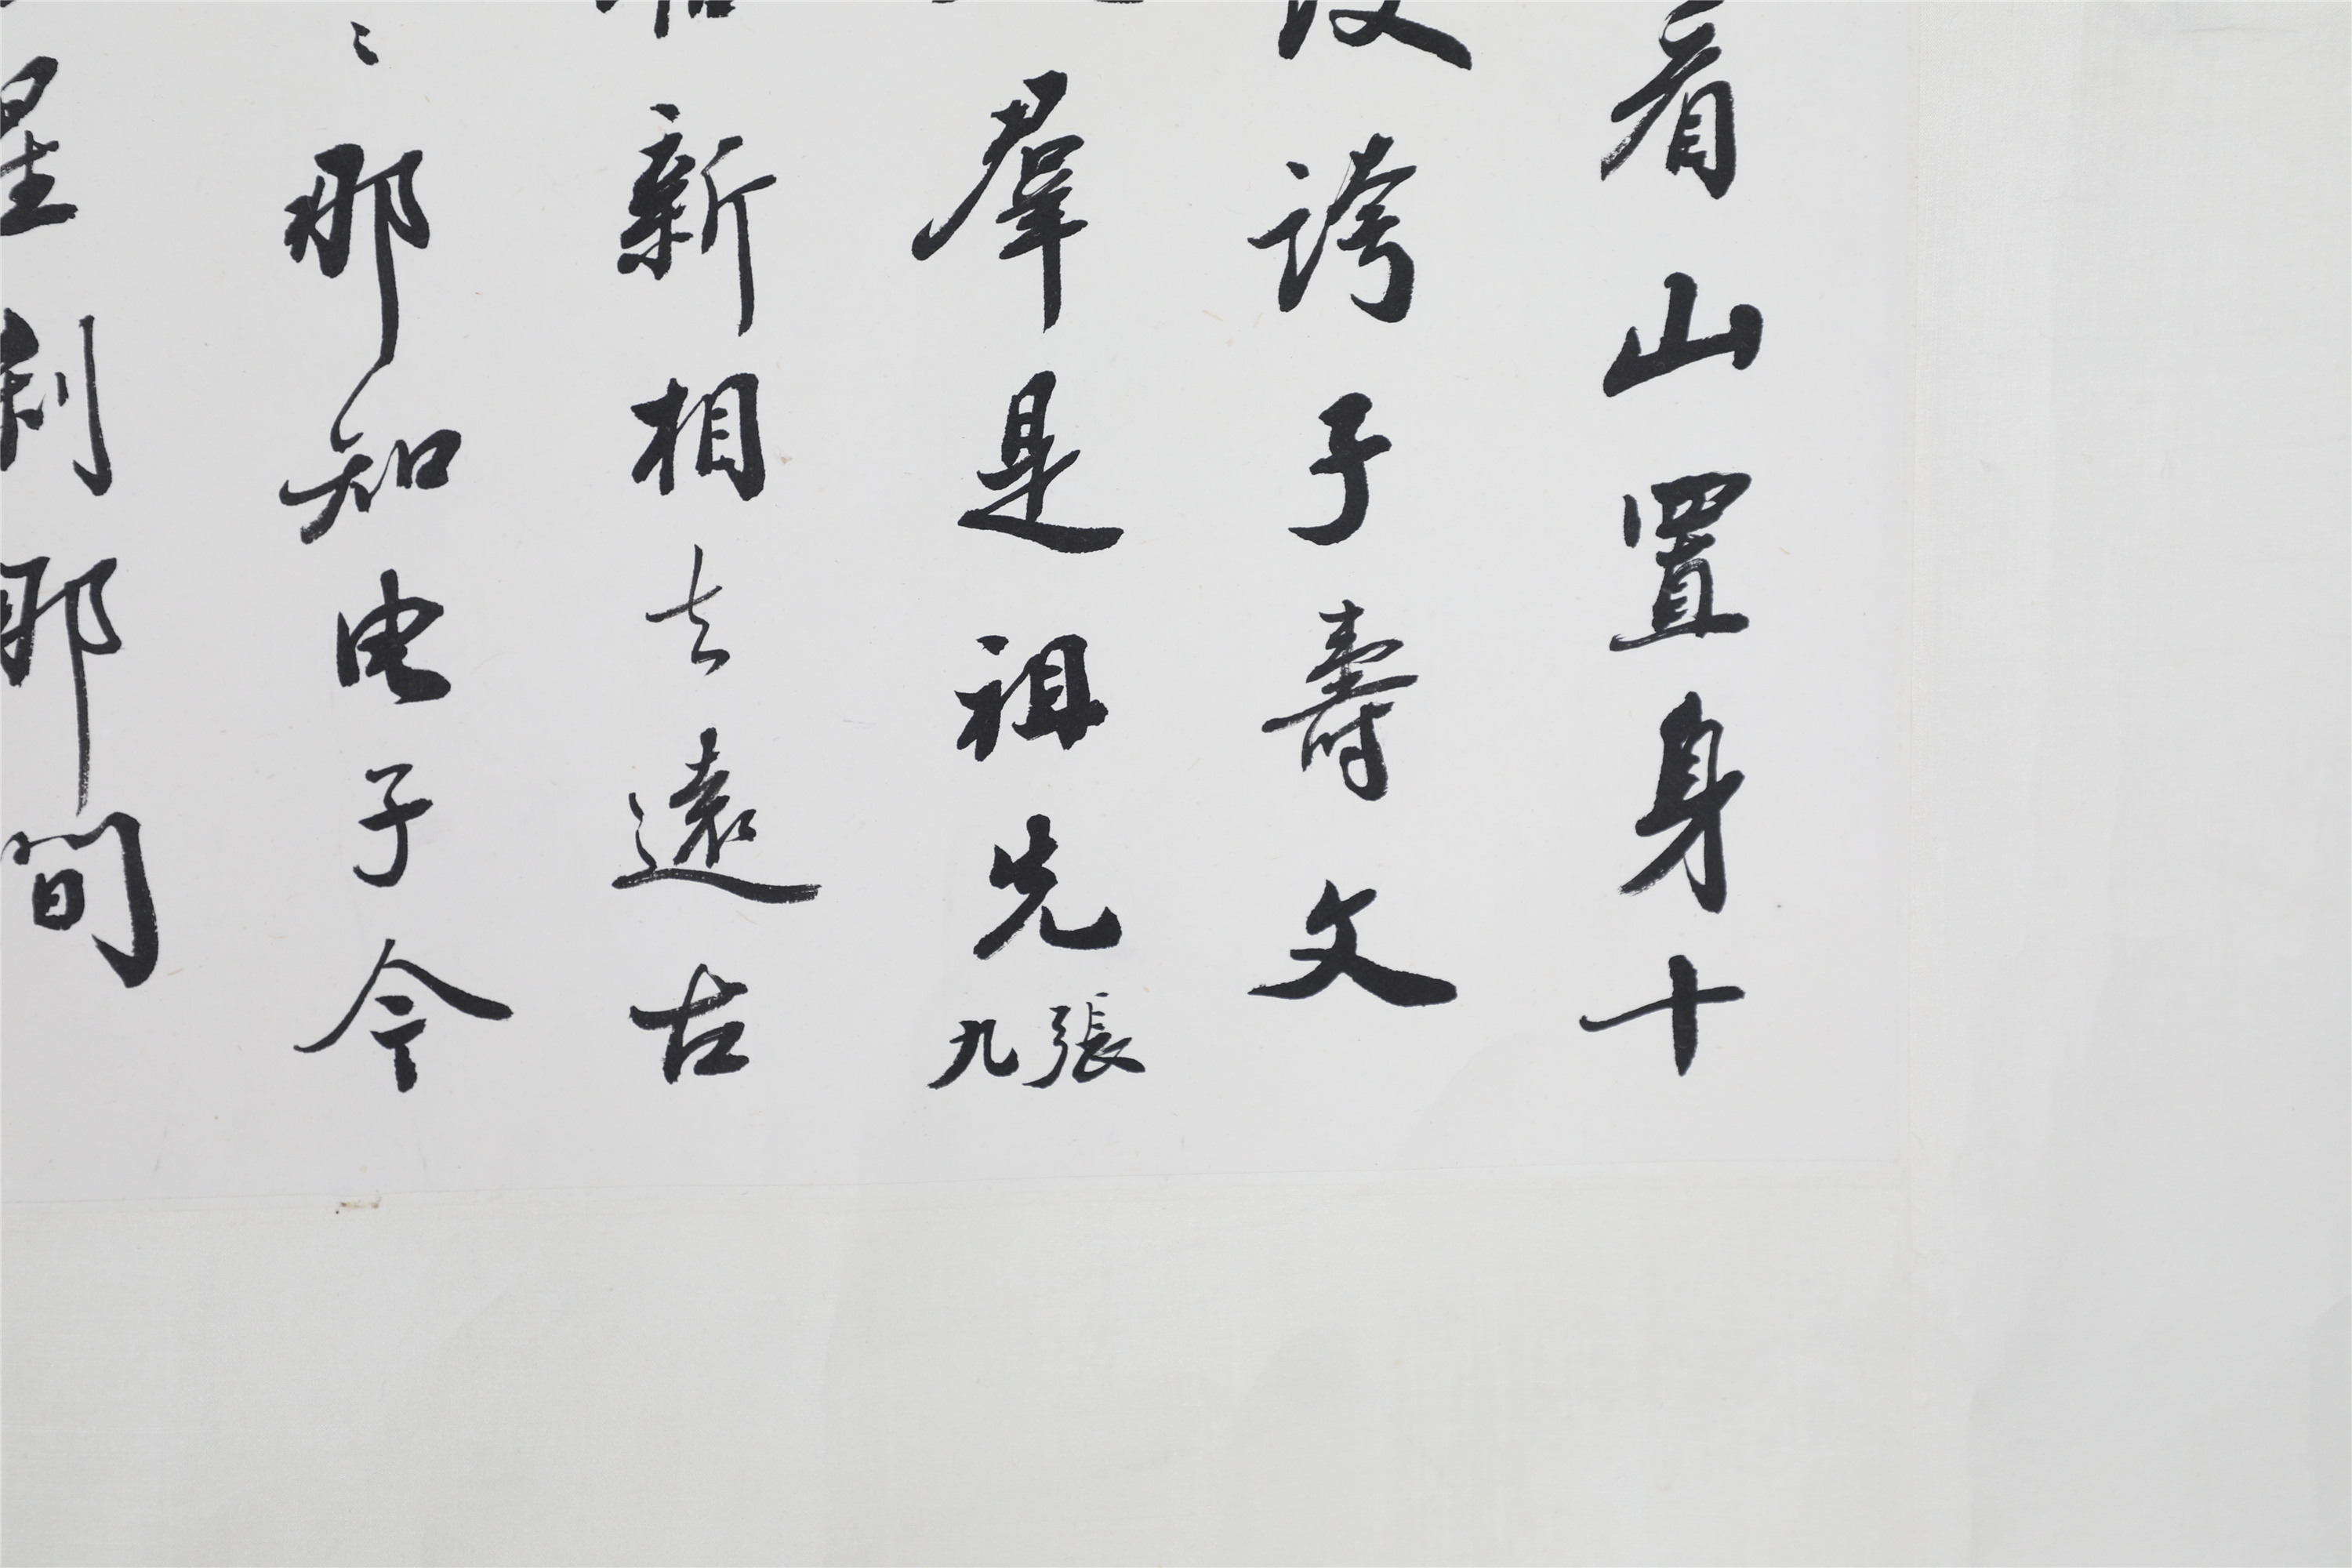 看山置身十
誇子壽文
羣是祖先張九
新相去遠古
〻那知电子今
星刹那間